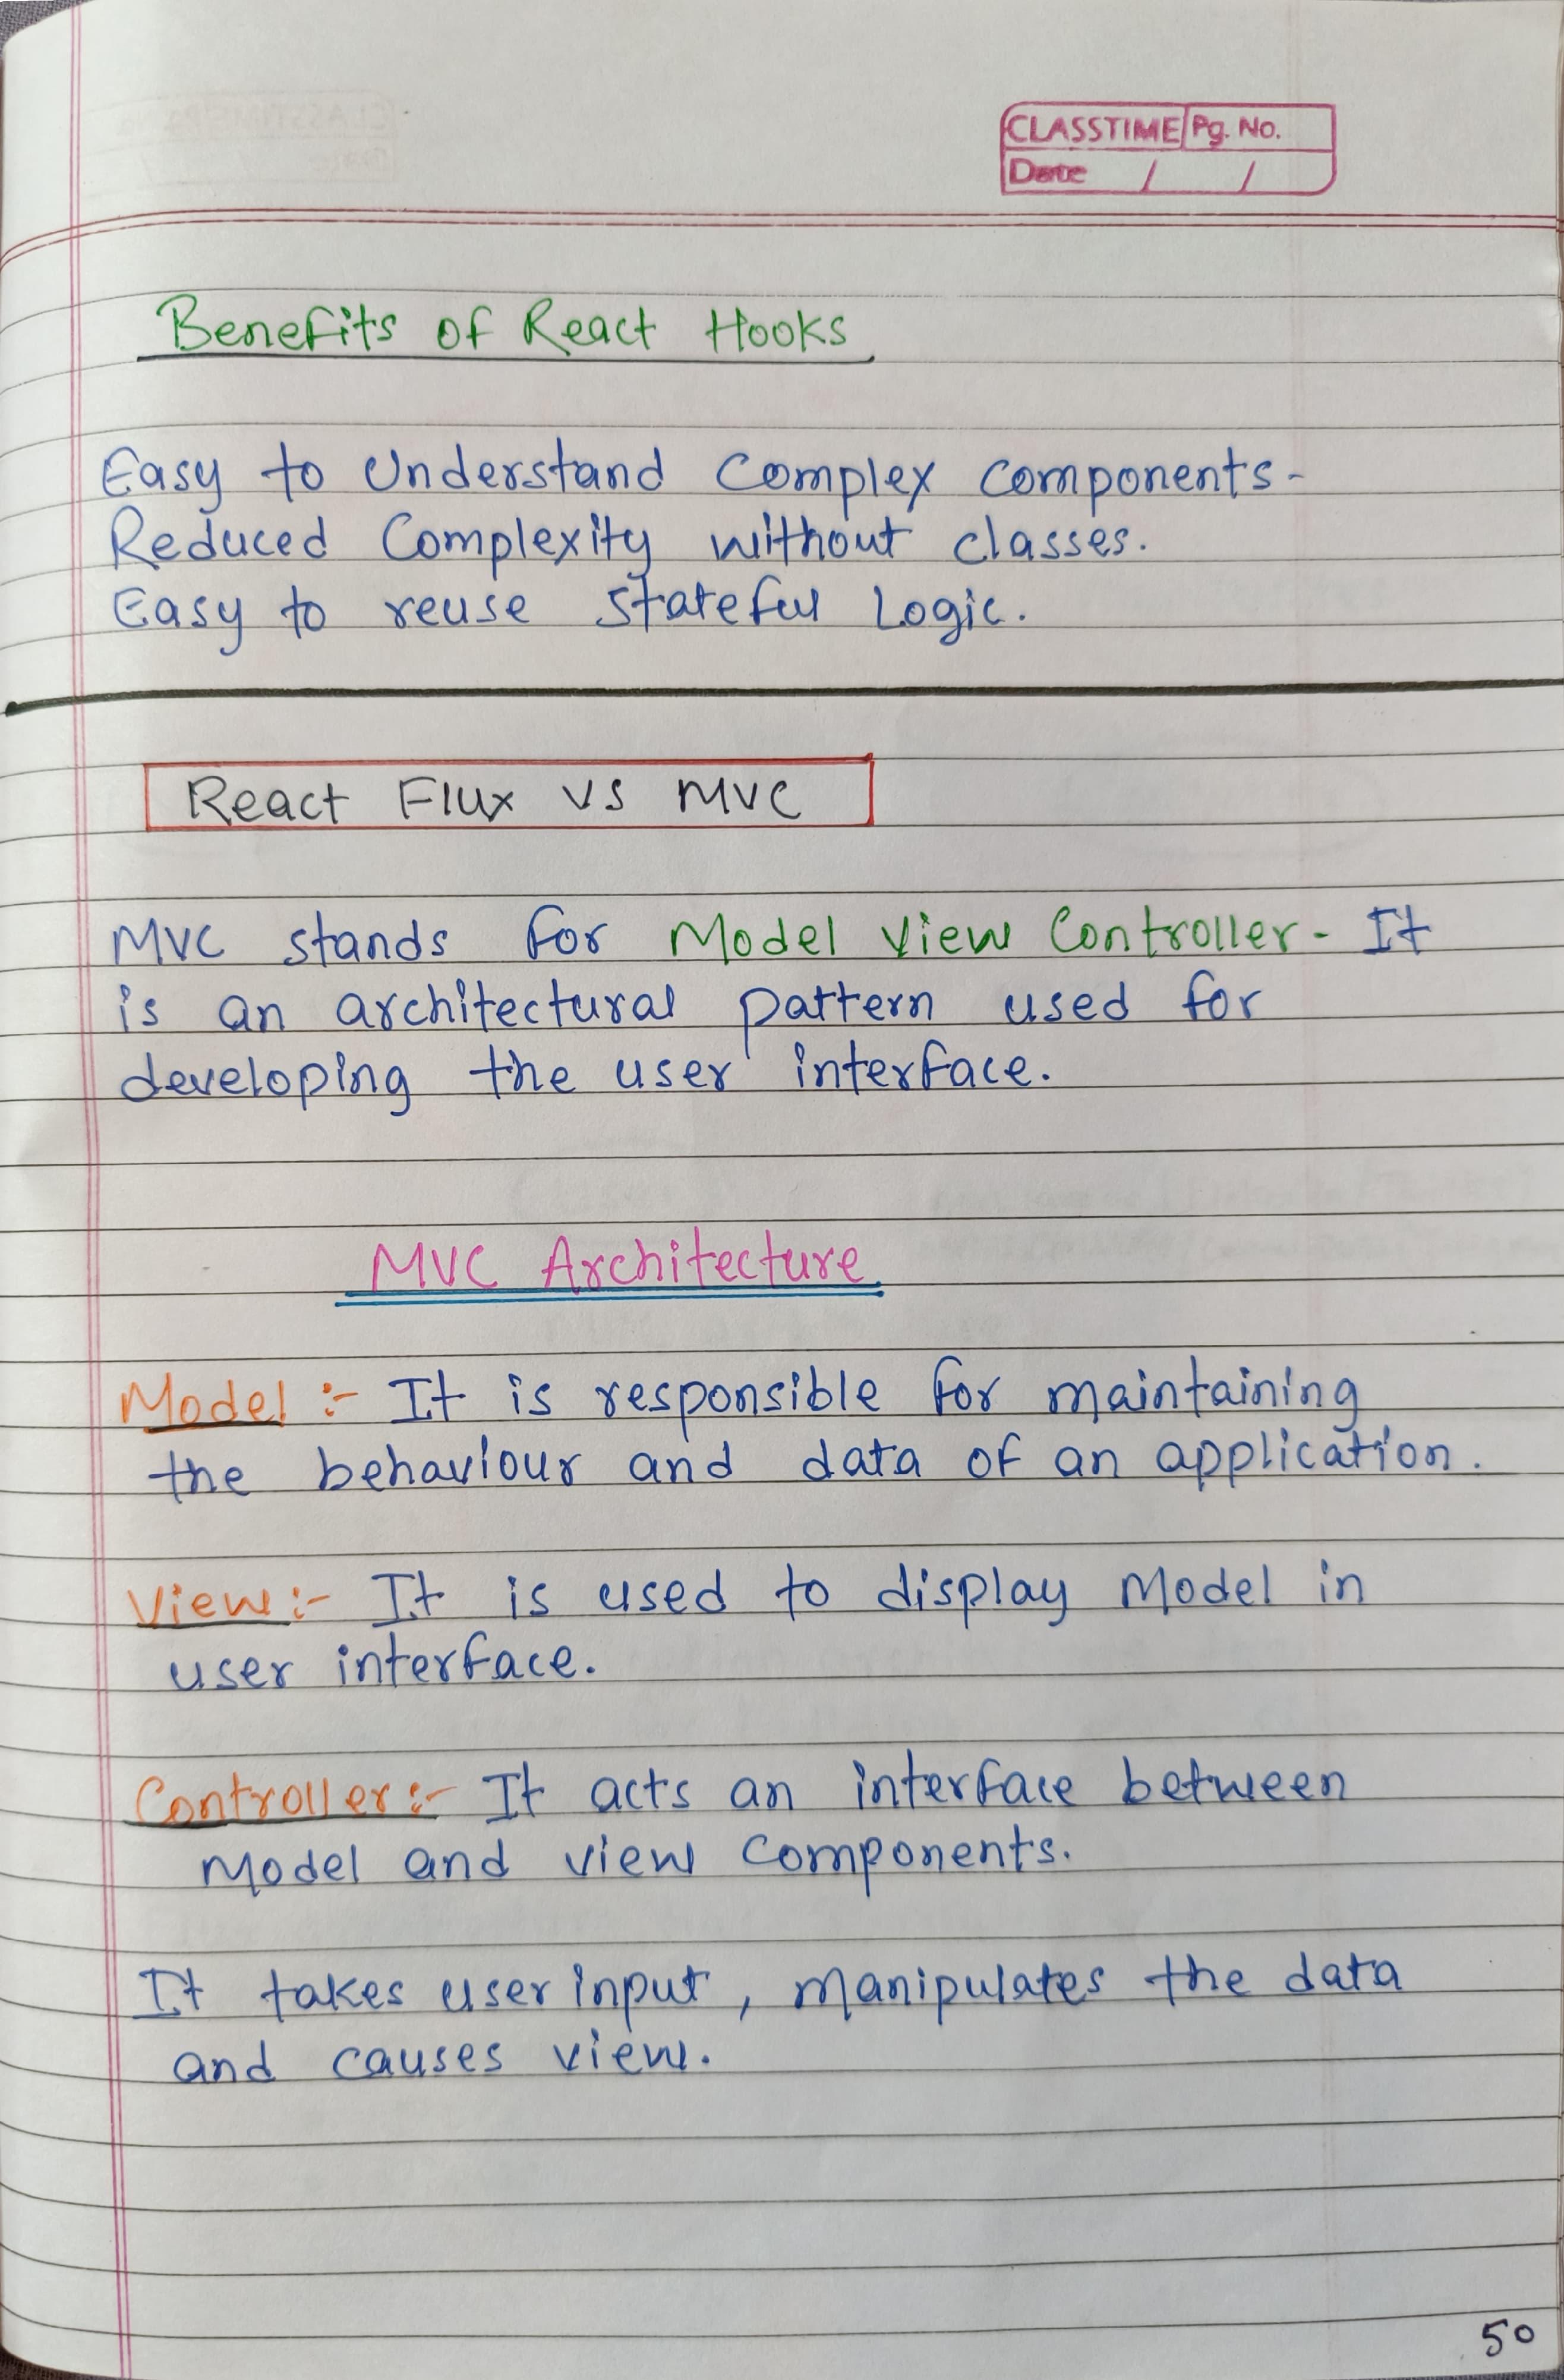 CLASSTIME Pg. No.
Date / /
Benefits of React Hooks
Easy to Understand Complex Components-
Reduced Complexity without classes.
Easy to reuse stateful Logic.
React Flux vs MVC
MVC stands for Model View Controller- It
is an architectural pattern used for
developing the user interface.
MVC Architecture
Model :- It is responsible for maintaining
the behaviour and data of an application.
View:- It is used to display Model in
user interface.
Controller:- It acts an interface between
Model and view Components.
It takes user input, manipulates the data
and causes view.
50